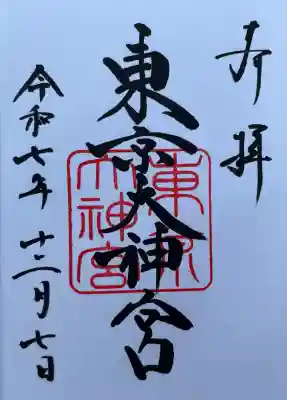 奉拝
東京大神宮
東京大神宮
令和七年十二月七日